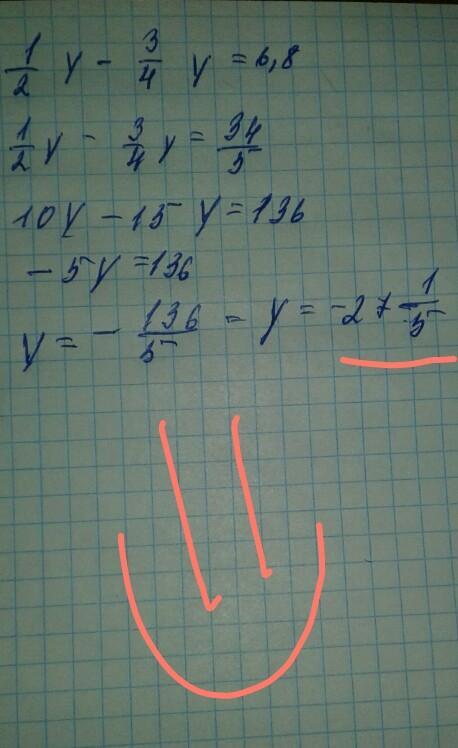 1/2 y - 3/4 y = 6,8
1/2 y - 3/4 y = 34/5
10y - 15y = 136
- 5y = 136
y = - 136/5 = y = -27 1/5